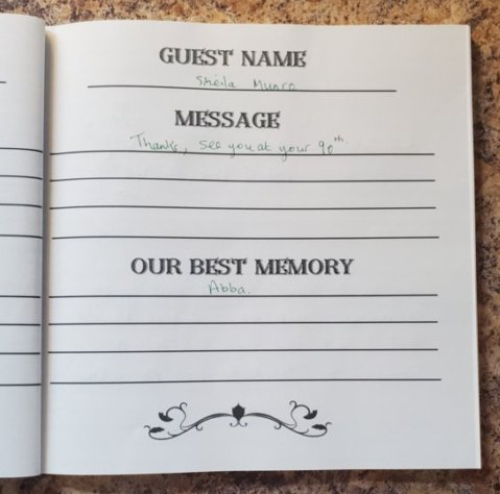 GUEST NAME
Sheila Munro
MESSAGE
Thanks, see you at your 90th.
OUR BEST MEMORY
Abba.